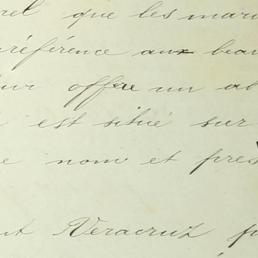 que les mar
référence aux beau
offre un ab
est situé sur
nom et pres
Veracruz